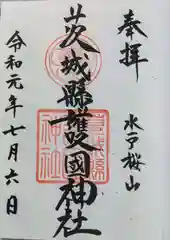 奉拝
水戸桜山
茨城縣護國神社
令和元年七月六日